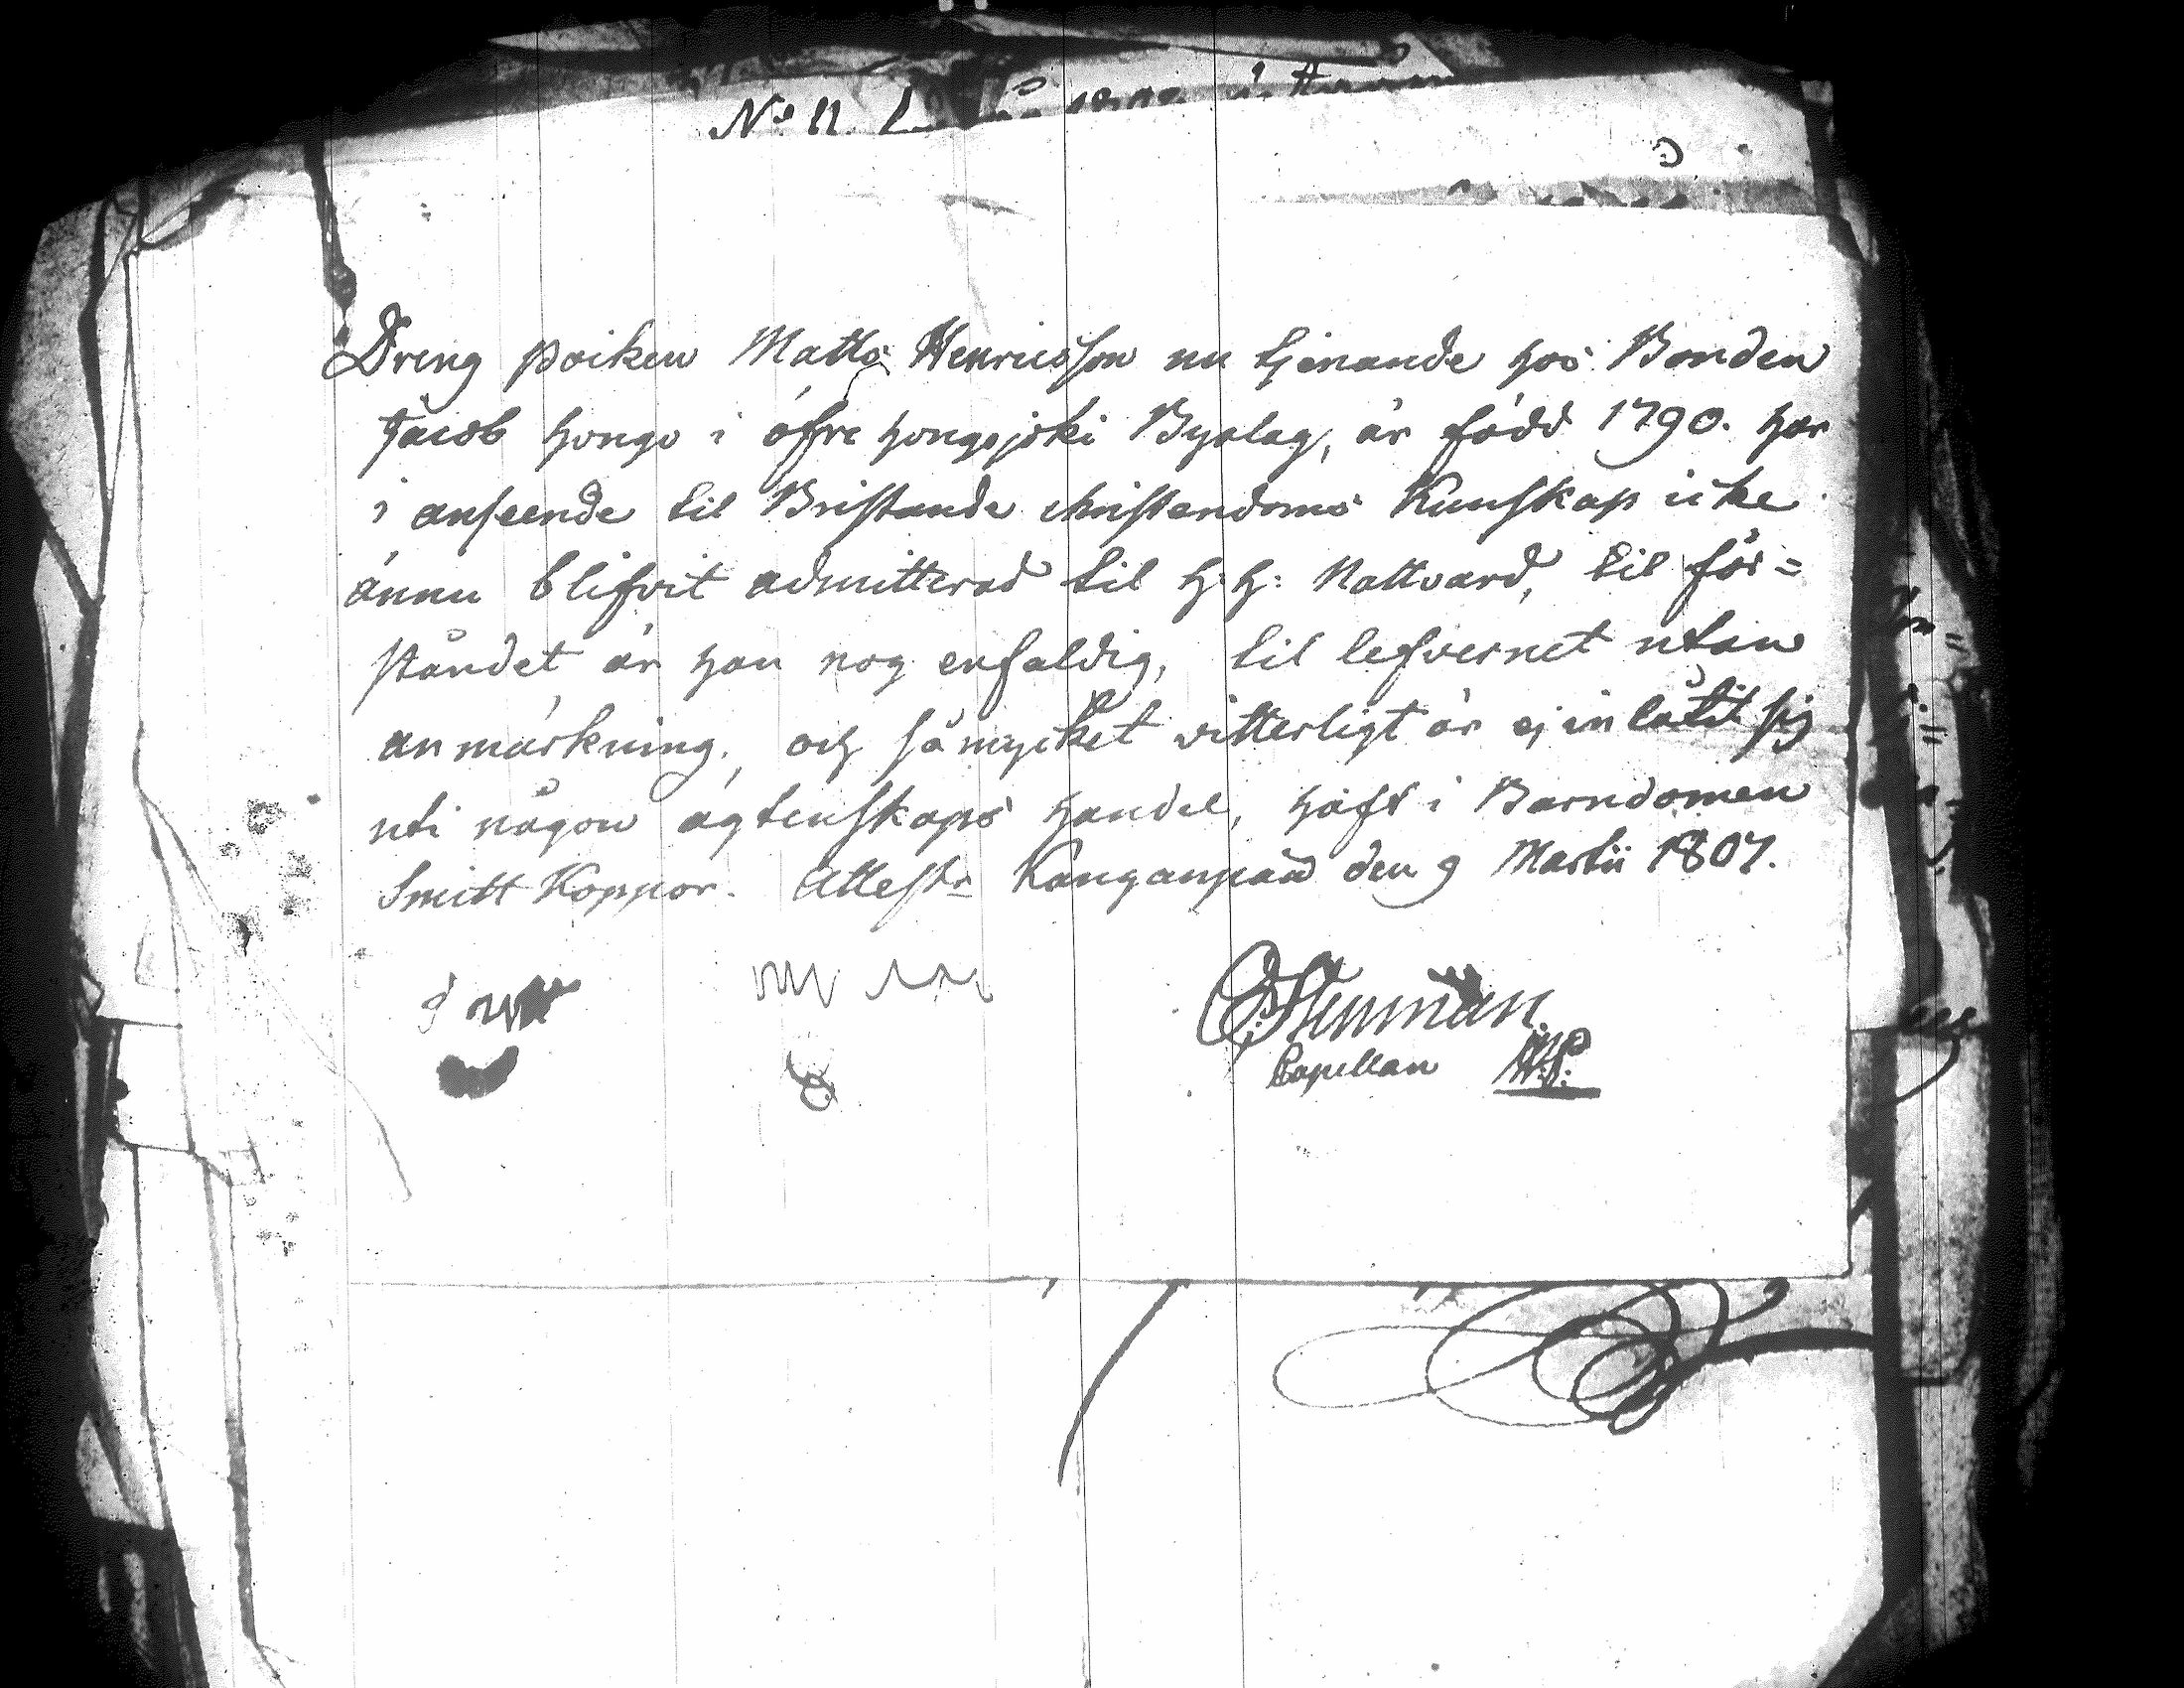 No 11.
Dreng poiken Matts Henricsson nu tjenande hos Bonden
Jacob Hongo i öfre Hongojoki Byalag, är född 1790. har
i anseende til Bristande christendoms Kunskap icke
ännu blifvit admitterad til H: H: Nattvard, til för=
ståndet är han nog enfaldig, til lefvernet utan
anmärkning, och så mycket vitterligt är ej inlåtit sig
uti någon ägtenskaps handel, haft i Barndomen
Smitt Koppor. Attestr Kanganpää den 9 Martii 1807.
Stenman
Capellan